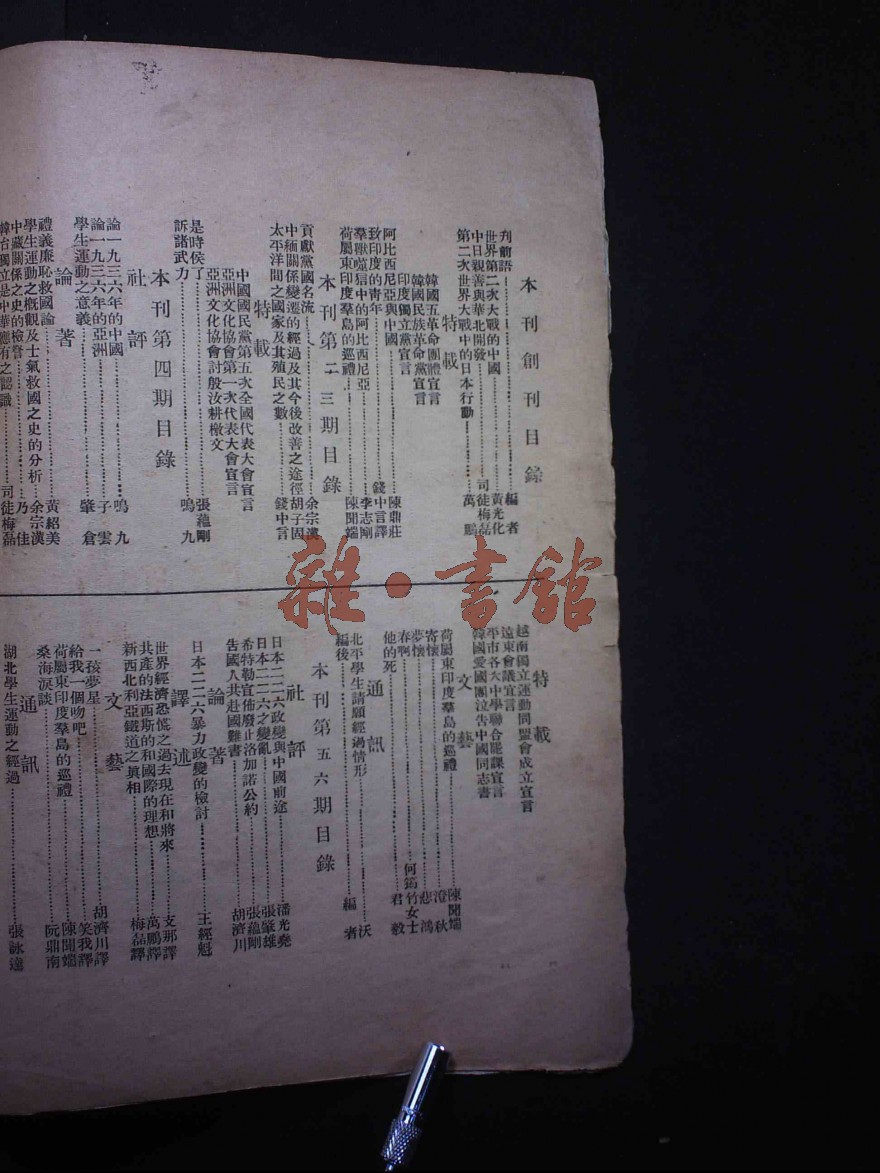 本刊創刊目錄
刋前語……編者
世界第二次大戰的中國……黃光化
中日親善與華北開發……司徒梅磊
第二次世界大戰中的日本行動……萬鵬
特載
韓國五革命團體宣言
韓國民族革命黨宣言
印度獨立黨宣言
阿比西尼亞與中國……陳鼎莊
致印度的青年……錢中言譯
羣獸噬獄中的阿比西尼亞……李志剛
荷屬東印度羣島的巡禮……陳聞端
本刊第二三期目錄
貢獻黨國名流……余宗漢
中緬關係變遷的經過及其今後改善之途徑胡子固
太平洋間之國家及其殖民之數……錢中言
特載
中國國民黨第五次全國代表大會宣言
亞洲文化協會第一次代表大會宣言
亞洲文化協會討殷汝耕檄文
是時侯了……張蘊剛
訴諸武力……鳴九
本刊第四期目錄
社評
論一九三六年的中國……鳴九
論一九三六年的亞洲……子雲
學生運動之意義……肇倉
論著
禮義廉恥救國論……黃紹美
學生運動之概觀及士氣救國之史的分析……余宗漢
中藏關係之史的檢討……乃佳
韓台獨立是中華應有之認識……司徒梅磊
特載
越南獨立運動同盟會成立宣言
遠東會議宣言
平市各大中學聯合罷課宣言
韓國愛國團泣告中國同志書
文藝
荷屬東印度羣島的巡禮……陳聞端
寄懷……澄秋
夢懷……悲鴻
春啊……何筠竹女士
他的死……君毅
通訊
北平學生請願經過情形……沃
編後……編者
本刊第五六期目錄
社評
日本二二六政變與中國前途……潘光堯
日本二二六之變亂……張肇雄
希特勒宣佈廢止洛加諾公約……張蘊剛
告國人共赴國難書……胡濟川
論著
日本二二六暴力政變的檢討……王經魁
譯述
世界經濟恐慌之過去現在和將來……支那譯
共產的法西斯的和國際的理想……萬鵬譯
新西北利亞鐵道之眞相……梅磊譯
文藝
一孩夢星……胡濟川譯
給我一個吻吧……笑我譯
荷屬東印度羣島的巡禮……陳聞端
桑海淚談……阮鼎南
通訊
湖北學生運動之經過……張詠達
雜·書館